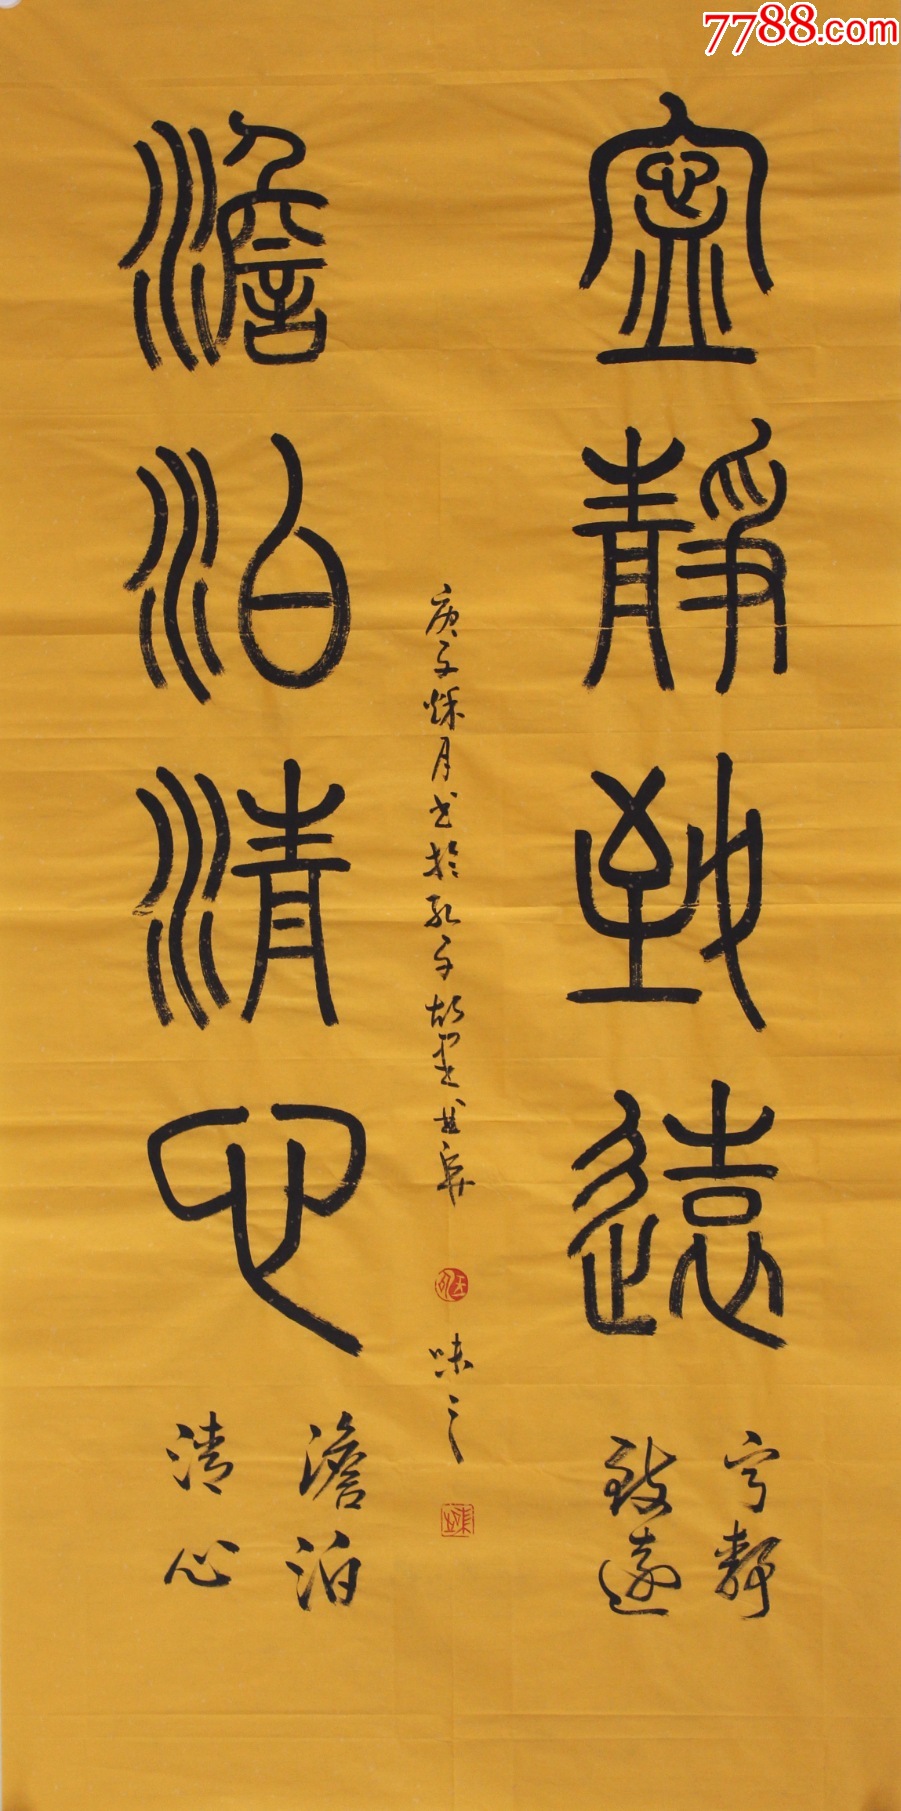 7788.com
寍靜致遠
澹泊清心
庚子秌月书於孔子故里
味之
宁静
致遠
澹泊
清心